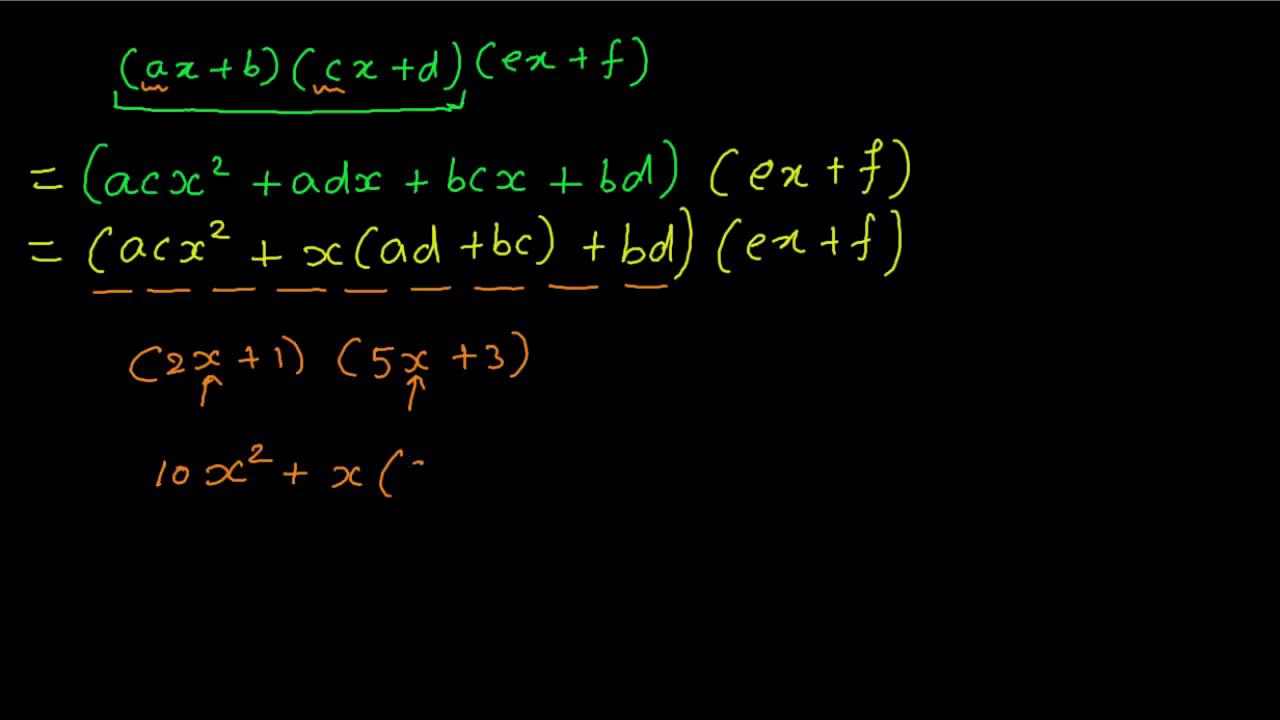 (ax+b)(cx+d)(ex+f)
= (acx² + adx + bcx + bd) (ex+f)
= (acx² + x(ad+bc) + bd) (ex+f)
(2x+1) (5x+3)
10x² + x(